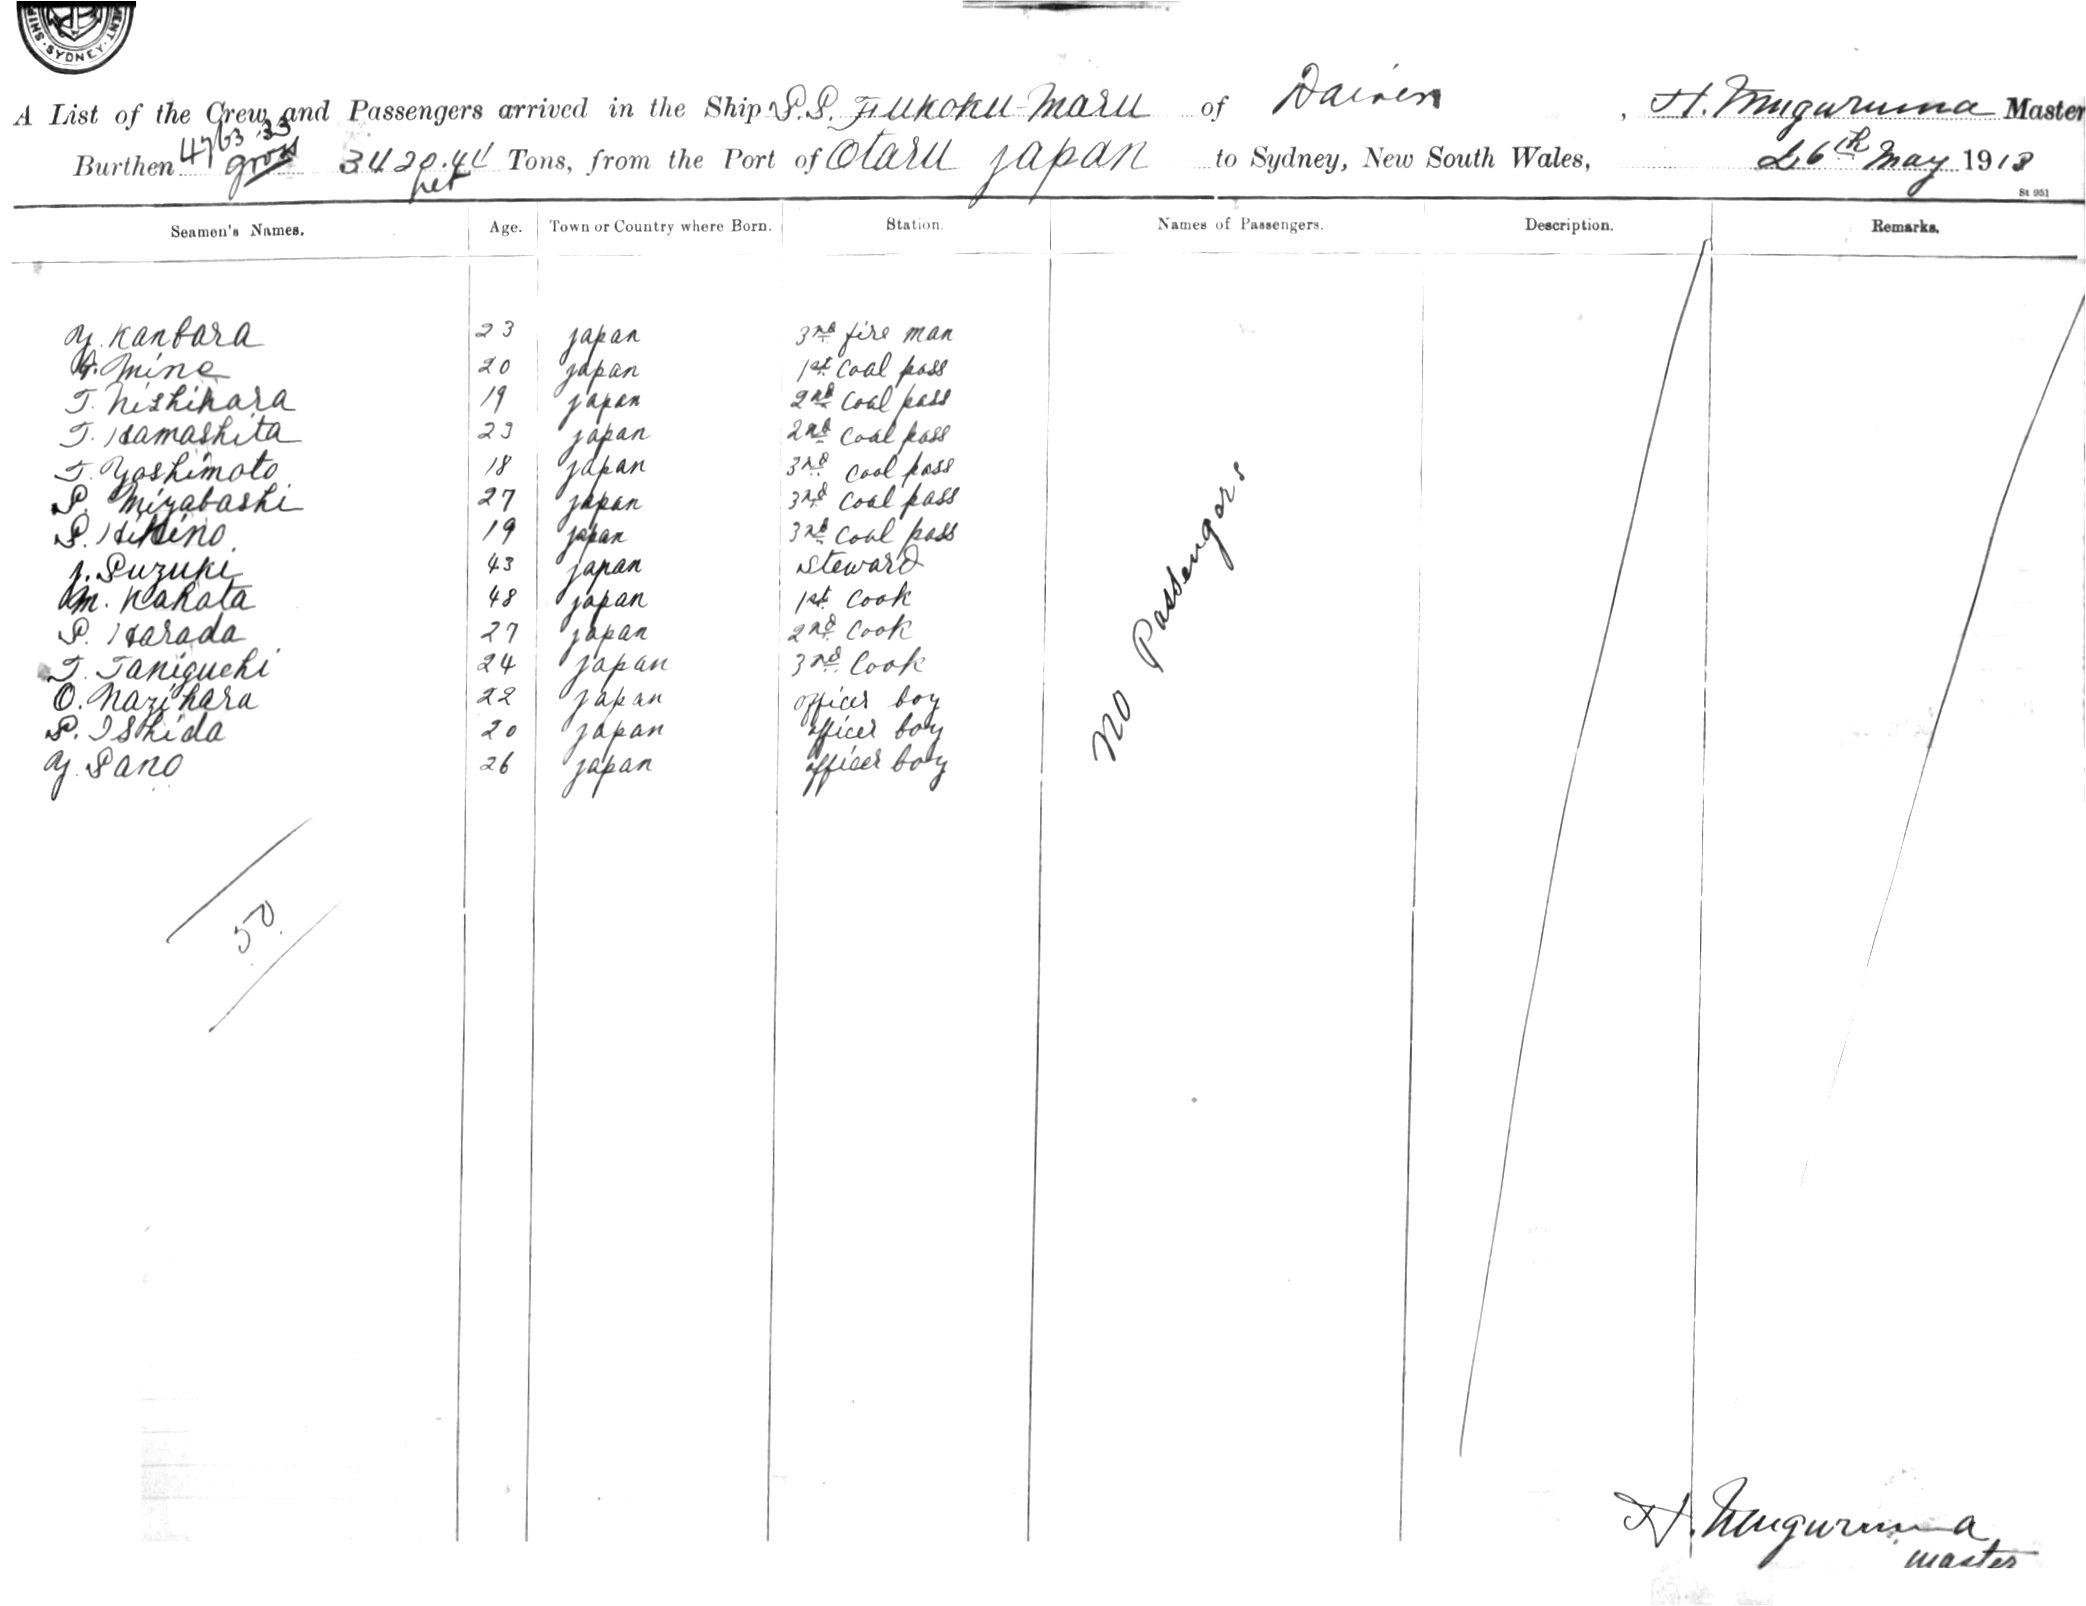 SYDNEY
A List of the Crew and Passengers arrived in the Ship S.S. Fukoku Maru of Dairen, H. Muguruma Master
Burthen 4763.33 gross 3420.44 net Tons, from the Port of Otaru Japan to Sydney, New South Wales, 26th May 1913
St 951
Seamen's Names. Age. Town or Country where Born. Station. Names of Passengers. Description. Remarks.
Y. Kanbara 23 Japan 3rd fire man
Mine 20 Japan 1st Coal pass
T. Nishihara 19 Japan 2nd Coal pass
T. Hamashita 23 Japan 2nd Coal pass
T. Yoshimoto 18 Japan 3rd Coal pass
S. Miyabashi 27 Japan 3rd Coal pass
S. Hikino 19 Japan 3rd Coal pass
J. Suzuki 43 Japan Steward
M. Nakata 48 Japan 1st Cook
S. Harada 27 Japan 2nd Cook
T. Taniguchi 24 Japan 3rd Cook
O. Nazihara 22 Japan officer boy
S. Ishida 20 Japan officer boy
Y. Sano 26 Japan officer boy
No Passengers
50
H. Muguruma
master